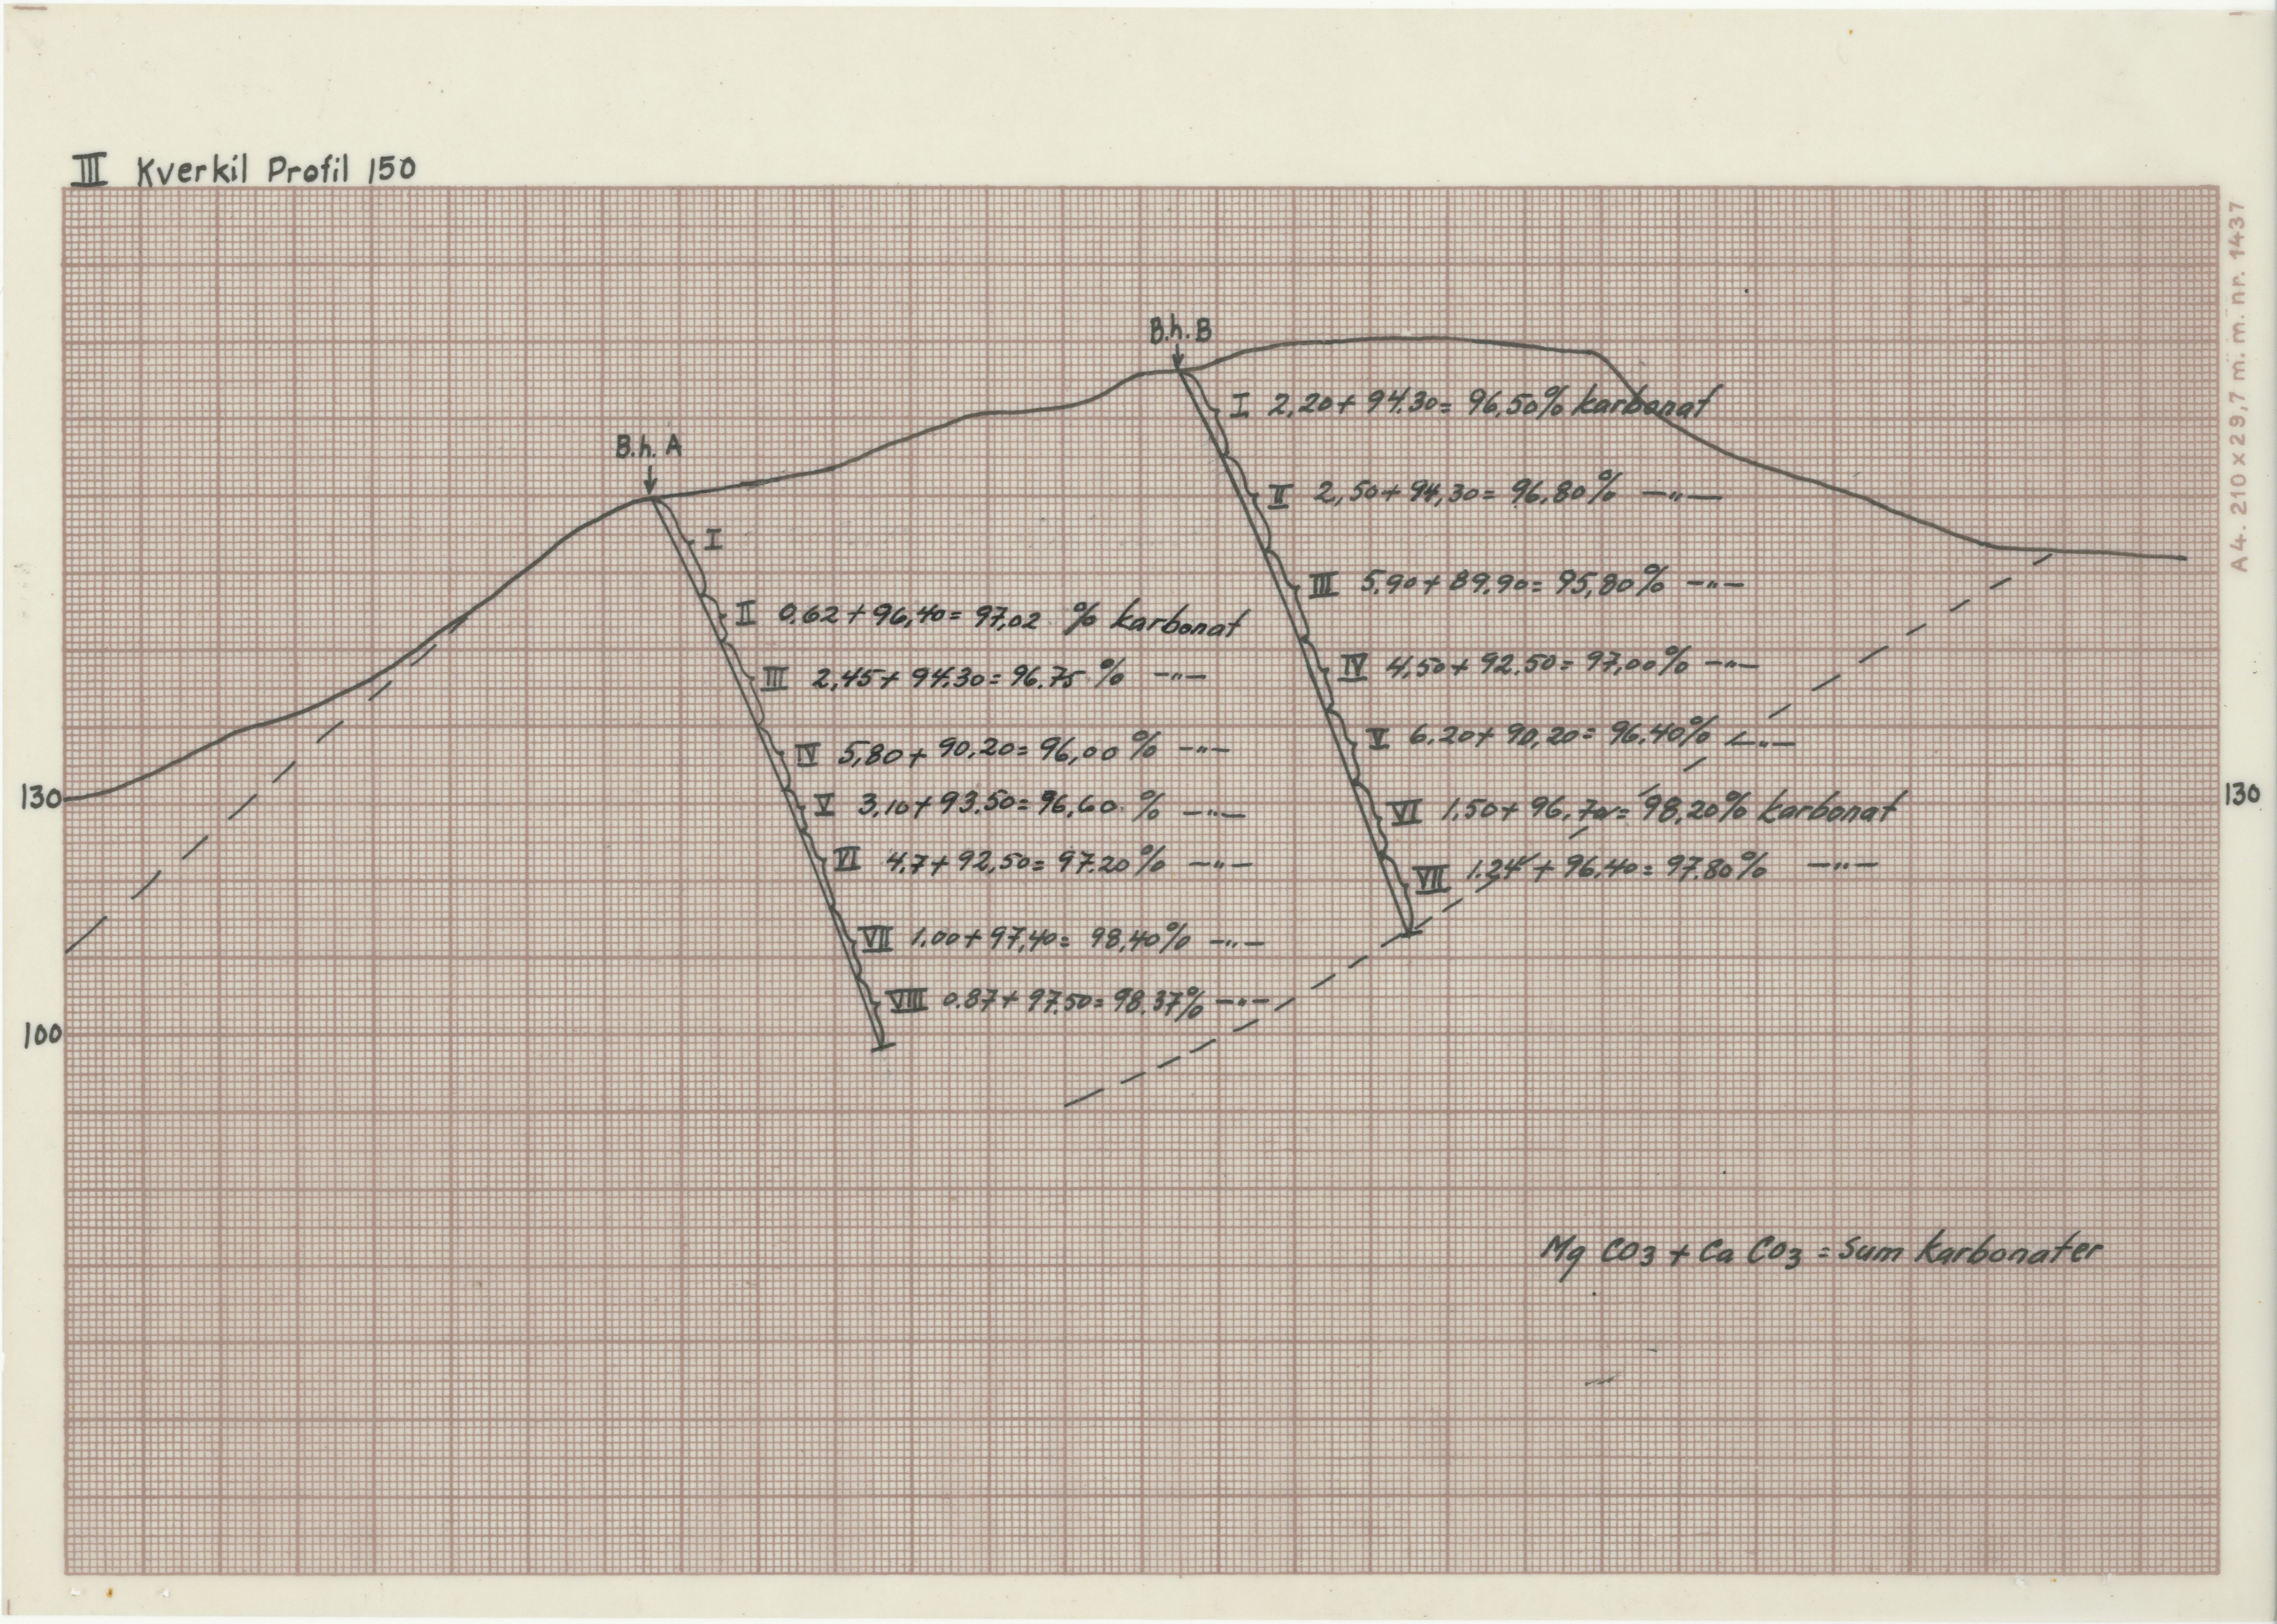 III Kverkil Profil 150
A4. 210 x 29,7 m. m. nr. 1437
B.h. B
I 2,20 + 94.30 = 96,50% karbonat
B.h. A
II 2,50 + 94,30 = 96,80% —"—
I
III 5,90 + 89,90 = 95,80% —"—
II 0,62 + 96,40 = 97,02 % karbonat
IV 4,50 + 92,50 = 97,00% —"—
III 2,45 + 94.30 = 96.75 % —"—
V 6,20 + 90,20 = 96,40% —"—
IV 5,80 + 90,20 = 96,00 % —"—
130
130
V 3,10 + 93,50 = 96,60 % —"—
VI 1,50 + 96,70 = 98,20% karbonat
VI 4,7 + 92,50 = 97.20% —"—
VII 1.24 + 96.40 = 97.80% —"—
VII 1,00 + 97,40 = 98,40% —"—
VIII 0.87 + 97,50 = 98.37% —"—
100
Mg CO3 + Ca CO3 = Sum karbonater